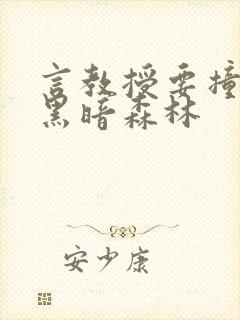 言教授要撞
黑暗森林
安少康